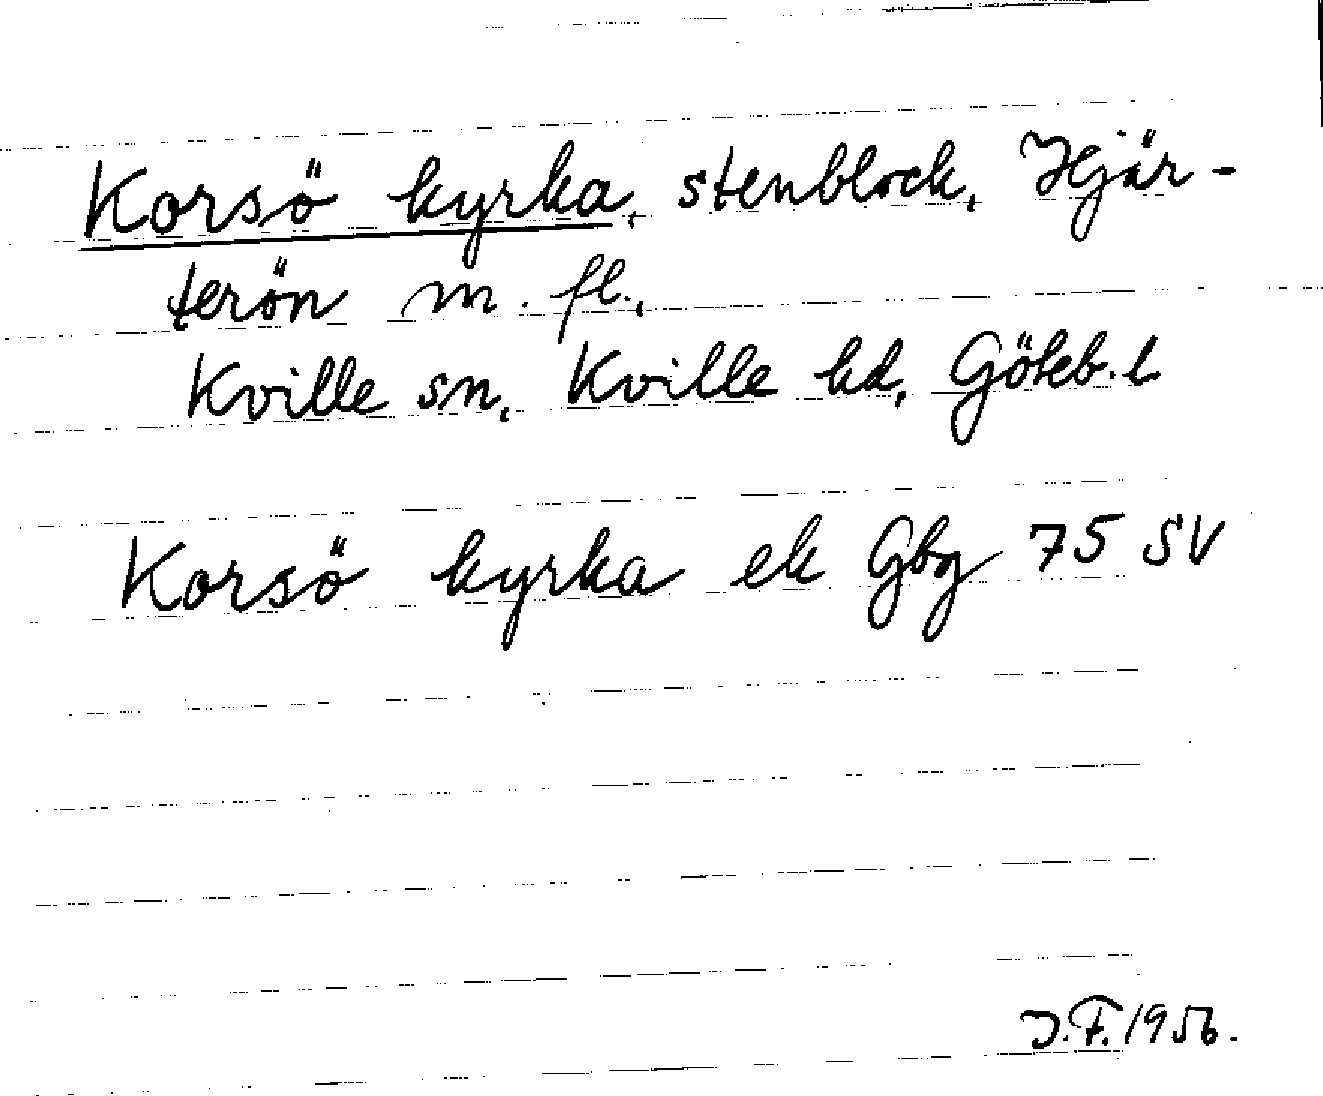 Korsö kyrka, stenblock, Hjär-
terön m. fl.,
Kville sn, Kville hd, Göteb. l
Korsö kyrka ek Gbg 75 SV
J.F. 1956.